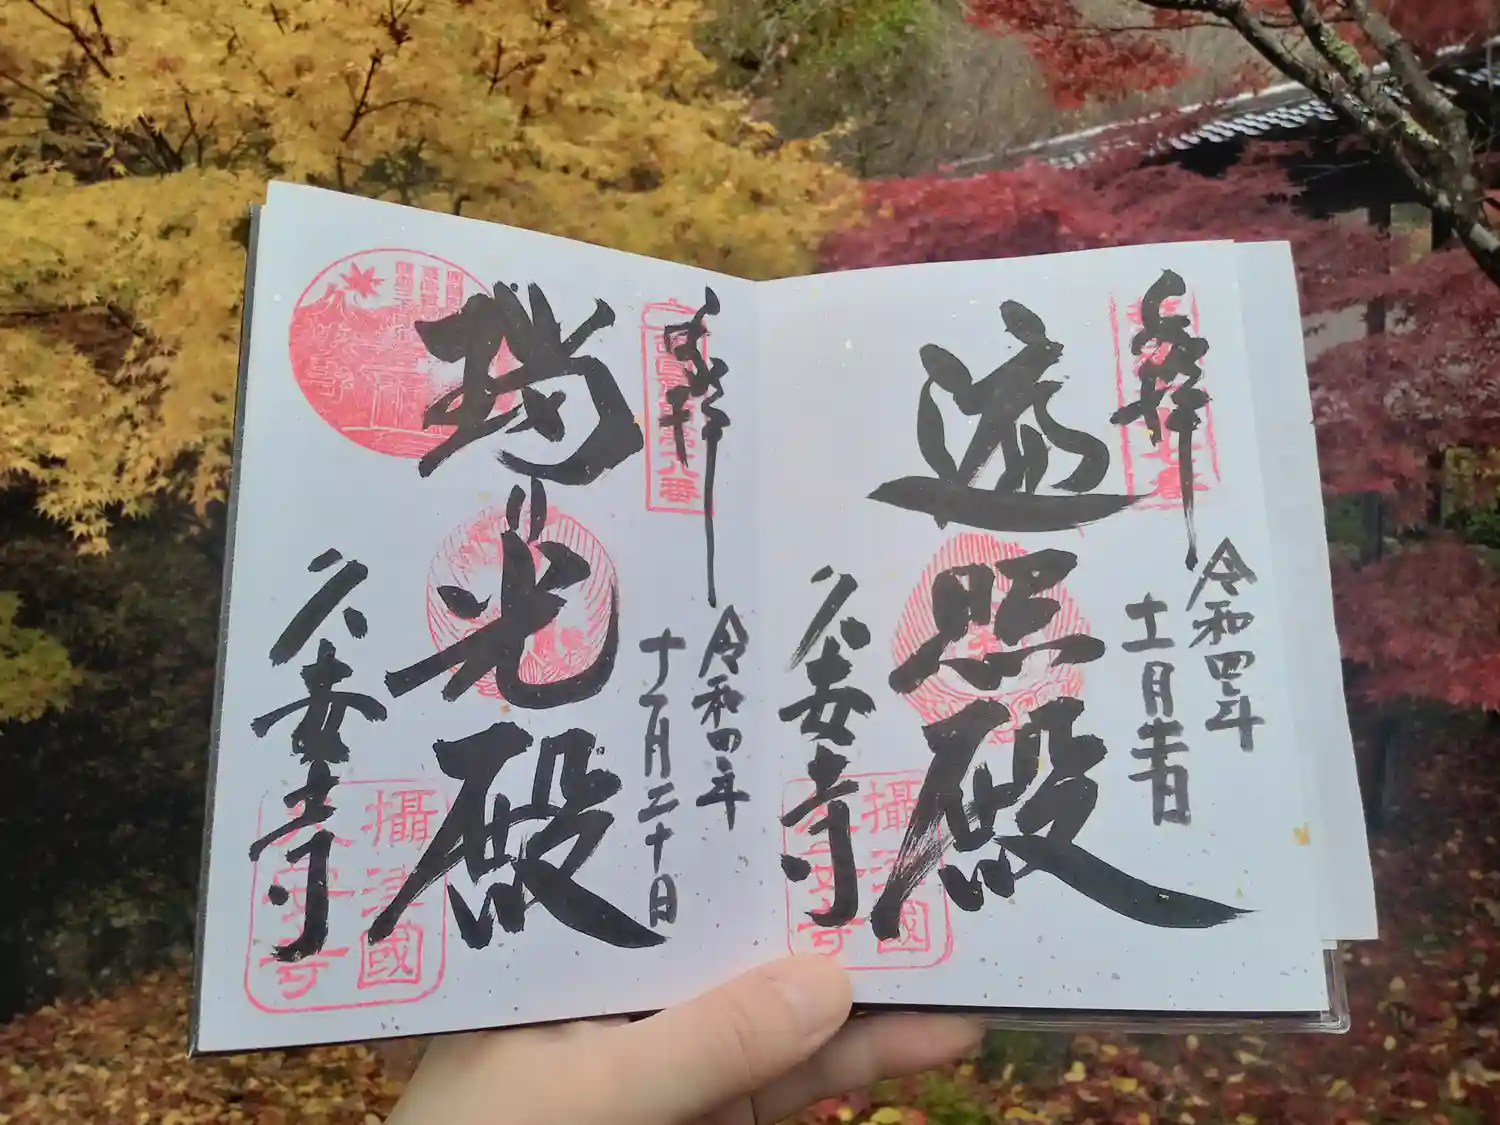 奉拝
令和四年
十一月
遍照殿
久安寺
攝津國
久安寺
奉拝
令和四年
十一月二十日
瑞光殿
久安寺
攝津國
久安寺